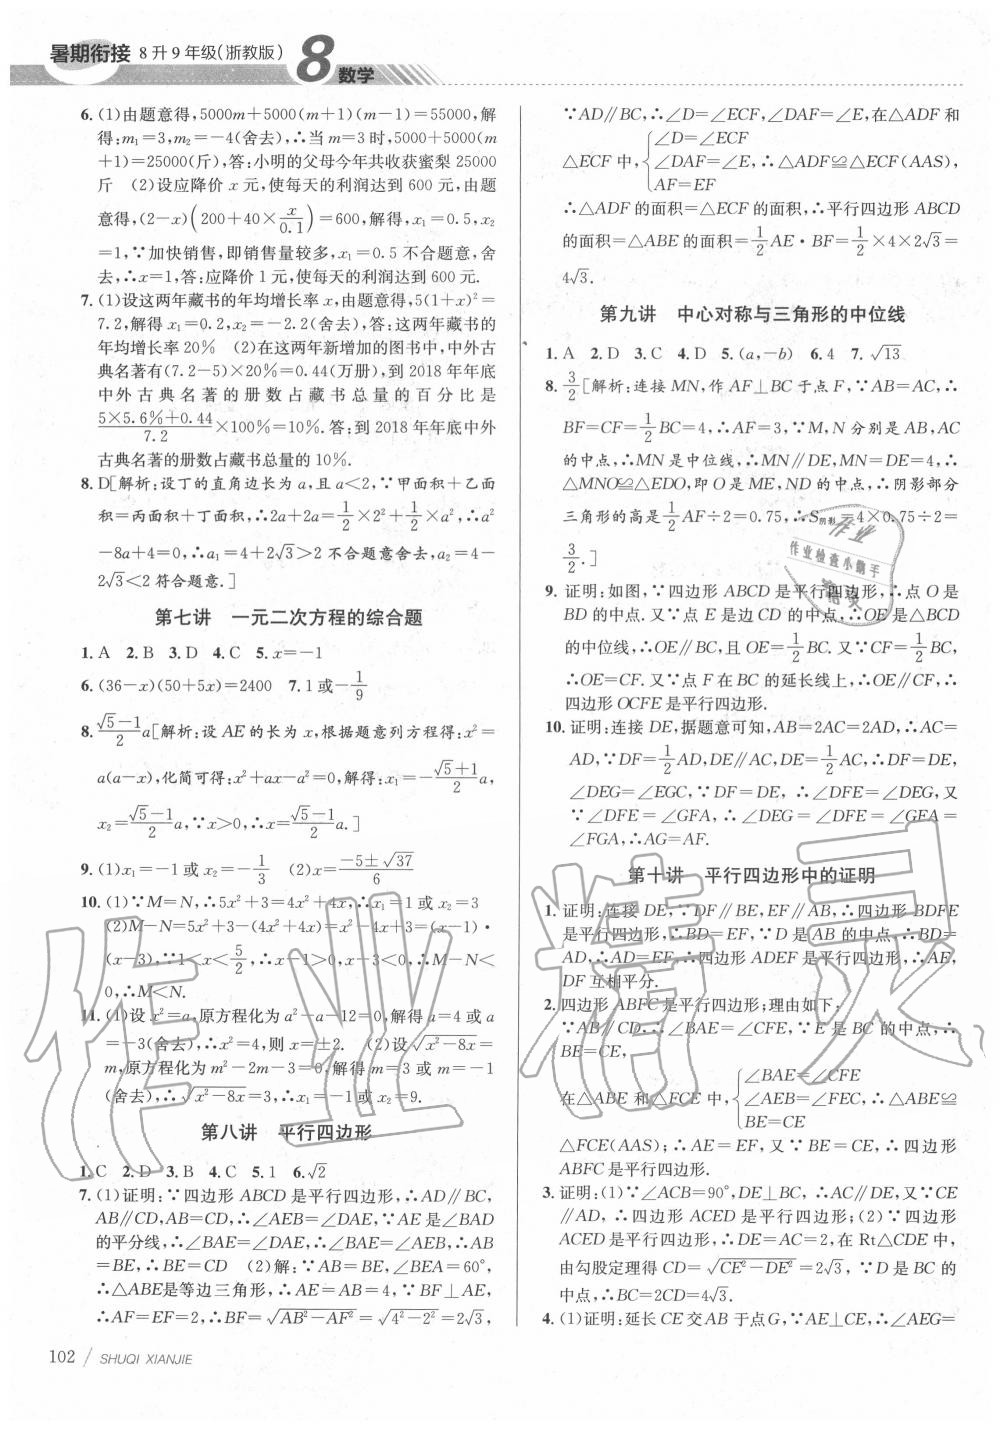 暑期衔接 8升9年级(浙教版) 8 数学
6. (1)由题意得,5000m+5000(m+1)(m-1)=55000,解
得:m₁=3,m₂=-4(舍去),∴当m=3时,5000+5000(m
+1)=25000(斤),答:小明的父母今年共收获蜜梨25000
斤 (2)设应降价x元,使每天的利润达到600元,由题
意得,(2-x)(200+40×x/0.1)=600,解得,x₁=0.5,x₂
=1,∵加快销售,即销售量较多,x₁=0.5不合题意,舍
去,∴x=1,答:应降价1元,使每天的利润达到600元.
7. (1)设这两年藏书的年均增长率x,由题意得,5(1+x)²=
7.2,解得x₁=0.2,x₂=-2.2(舍去),答:这两年藏书的
年均增长率20% (2)在这两年新增加的图书中,中外古
典名著有(7.2-5)×20%=0.44(万册),到2018年年底
中外古典名著的册数占藏书总量的百分比是
(5×5.6%+0.44)/7.2×100%=10%.答:到2018年年底中外
古典名著的册数占藏书总量的10%.
8. D[解析:设丁的直角边长为a,且a<2,∵甲面积+乙面
积=丙面积+丁面积,∴2a+2a=1/2×2²+1/2×a²,∴a²
-8a+4=0,∴a₁=4+2√3>2不合题意舍去,a₂=4-
2√3<2符合题意.]
第七讲 一元二次方程的综合题
1. A 2. B 3. D 4. C 5. x=-1
6. (36-x)(50+5x)=2400 7. 1或-1/9
8. (√5-1)/2 a[解析:设AE的长为x,根据题意列方程得:x²=
a(a-x),化简可得:x²+ax-a²=0,解得:x₁=-(√5+1)/2 a,
x₂=(√5-1)/2 a,∵x>0,∴x=(√5-1)/2 a.]
9. (1)x₁=-1或x₂=-1/3 (2)x=(-5±√37)/6
10. (1)∵M=N,∴5x²+3=4x²+4x,∴x₁=1或x₂=3
(2)M-N=5x²+3-(4x²+4x)=x²-4x+3=(x-1)·
(x-3),∵1<x<5/2,∴x-1>0,x-3<0,∴M-N<
0,∴M<N.
11. (1)设x²=a,原方程化为a²-a-12=0,解得a=4或a
=-3(舍去),∴x²=4,则x=±2. (2)设√(x²-8x)=
m,原方程化为m²-2m-3=0,解得m=3或m=-1
(舍去),∴√(x²-8x)=3,∴x₁=-1或x₂=9.
第八讲 平行四边形
1. C 2. D 3. B 4. C 5. 1 6. √2
7. (1)证明:∵四边形ABCD是平行四边形,∴AD∥BC,
AB∥CD,AB=CD,∴∠AEB=∠DAE,∵AE是∠BAD
的平分线,∴∠BAE=∠DAE,∴∠BAE=∠AEB,∴AB
=BE,∴BE=CD (2)解:∵AB=BE,∠BEA=60°,
∴△ABE是等边三角形,∴AE=AB=4,∵BF⊥AE,
∴AF=EF=2,∴BF=√(AB²-AF²)=√(4²-2²)=2√3,
102 / SHUQI XIANJIE
∵AD∥BC,∴∠D=∠ECF,∠DAF=∠E,在△ADF和
△ECF中,{∠D=∠ECF
∠DAF=∠E,∴△ADF≌△ECF(AAS),
AF=EF
∴△ADF的面积=△ECF的面积,∴平行四边形ABCD
的面积=△ABE的面积=1/2 AE·BF=1/2×4×2√3=
4√3.
第九讲 中心对称与三角形的中位线
1. A 2. D 3. C 4. D 5. (a,-b) 6. 4 7. √13
8. 3/2[解析:连接MN,作AF⊥BC于点F,∵AB=AC,∴
BF=CF=1/2 BC=4,∴AF=3,∵M,N分别是AB,AC
的中点,∴MN是中位线,∴MN∥DE,MN=DE=4,∴
△MNO≌△EDO,即O是ME,ND的中点,∴阴影部分
三角形的高是1/2 AF÷2=0.75,∴S阴影=4×0.75÷2=
3/2.]
9. 证明:如图,∵四边形ABCD是平行四边形,∴点O是
BD的中点.又∵点E是边CD的中点,∴OE是△BCD
的中位线,∴OE∥BC,且OE=1/2 BC.又∵CF=1/2 BC,
∴OE=CF.又∵点F在BC的延长线上,∴OE∥CF,∴
四边形OCFE是平行四边形.
10. 证明:连接DE,据题意可知,AB=2AC=2AD,∴AC=
AD,∵DF=1/2 AD,DE∥AC,DE=1/2 AC,∴DF=DE,
∠DEG=∠EGC,∵DF=DE,∴∠DFE=∠DEG,又
∵∠DFE=∠GFA,∴∠DEG=∠DFE=∠GFA=
∠FGA,∴AG=AF.
第十讲 平行四边形中的证明
1. 证明:连接DE,∵DF∥BE,EF∥AB,∴四边形BDFE
是平行四边形,∴BD=EF,∵D是AB的中点,∴BD=
AD,∴AD=EF,∴四边形ADEF是平行四边形,∴AE,
DF互相平分.
2. 四边形ABFC是平行四边形;理由如下:
∵AB∥CD,∴∠BAE=∠CFE,∵E是BC的中点,∴
BE=CE,
在△ABE和△FCE中,{∠BAE=∠CFE
∠AEB=∠FEC,∴△ABE≌
BE=CE
△FCE(AAS);∴AE=EF,又∵BE=CE,∴四边形
ABFC是平行四边形.
3. 证明:(1)∵∠ACB=90°,DE⊥BC,∴AC∥DE,又∵CE
∥AD,∴四边形ACED是平行四边形;(2)∵四边形
ACED是平行四边形,∴DE=AC=2,在Rt△CDE中,
由勾股定理得CD=√(CE²-DE²)=2√3,∵D是BC的
中点,∴BC=2CD=4√3.
4. (1)证明:延长CE交AB于点G,∵AE⊥CE,∴∠AEG=
作业精灵
作业
作业检查小能手